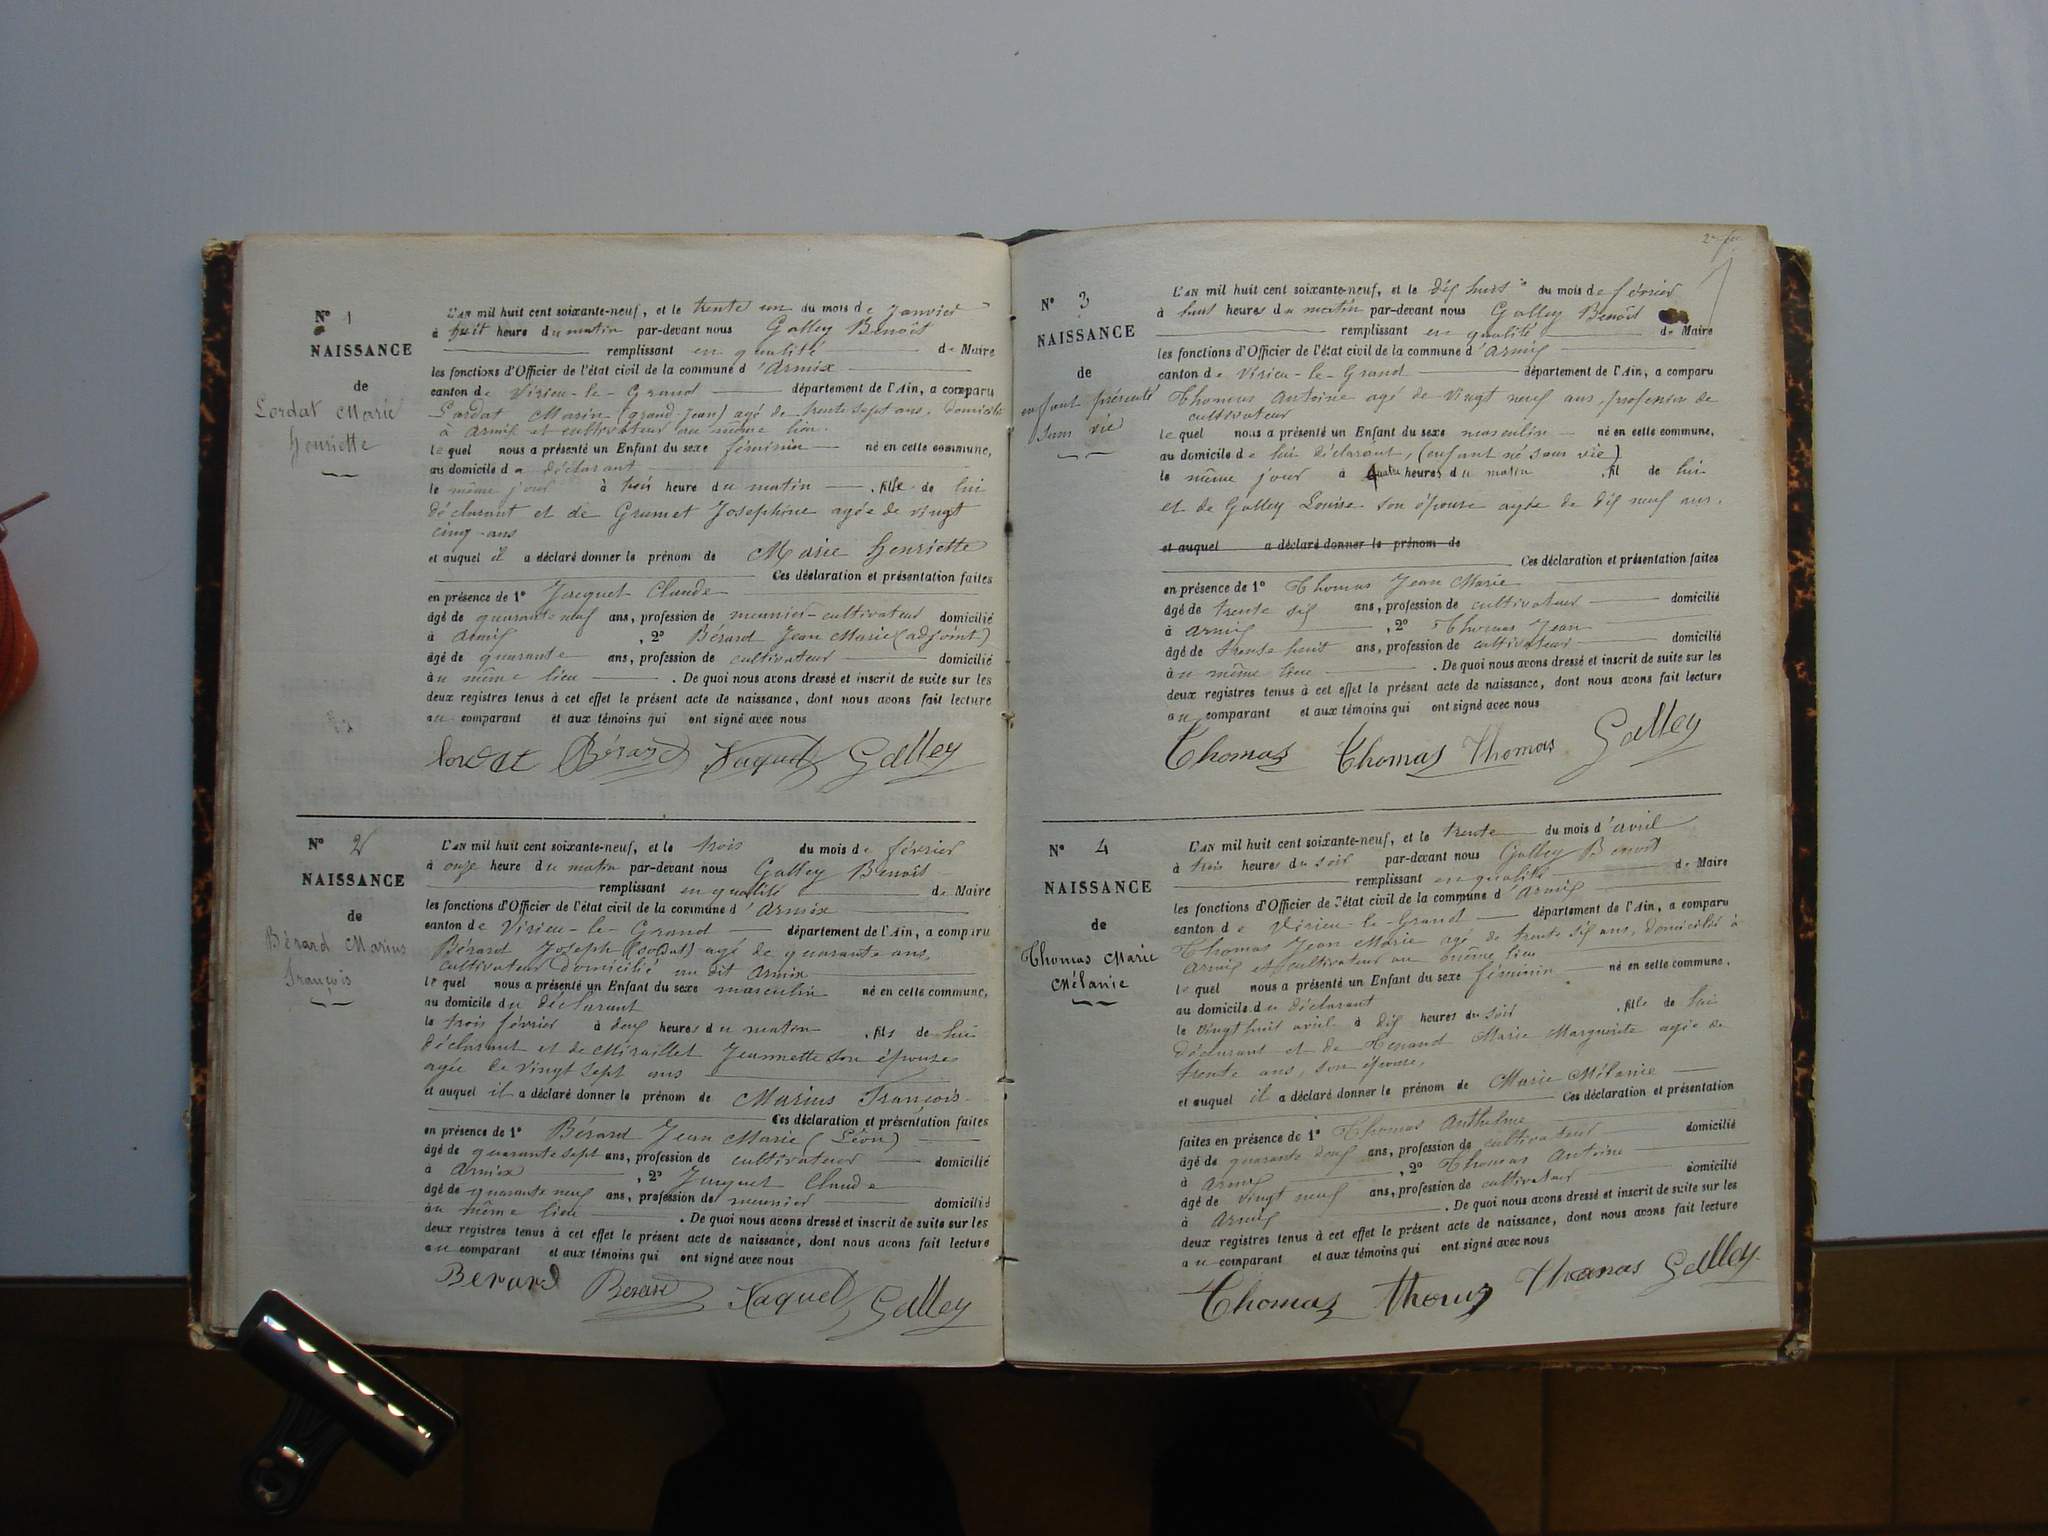 N° 1
NAISSANCE
de
Lordat Marie
henriette
L'AN mil huit cent soixante-neuf, et le trente un du mois de Janvier
à huit heure du matin par-devant nous Galley Benoît
remplissant en qualité de Maire
les fonctions d'Officier de l'état civil de la commune d'Armix
canton de Virieu-le-Grand département de l'Ain, a comparu
Lordat Marin (grand-jean) agé de trente sept ans, domicilié
à Armix et cultivateur au même lieu.
lequel nous a présenté un Enfant du sexe féminin né en cette commune,
au domicile du déclarant
le même jour à trois heure du matin fille de lui
déclarant et de Grumet Josephine agée de vingt
cinq ans
et auquel il a déclaré donner le prénom de Marie henriette
Ces déclaration et présentation faites
en présence de 1° Jacquet Claude
âgé de quarante neuf ans, profession de meunier-cultivateur domicilié
à Armix, 2° Bérard Jean Marie (adjoint)
âgé de quarante ans, profession de cultivateur domicilié
au même lieu. De quoi nous avons dressé et inscrit de suite sur les
deux registres tenus à cet effet le présent acte de naissance, dont nous avons fait lecture
au comparant et aux témoins qui ont signé avec nous
lordat Bérard Jaquet Galley
N° 2
NAISSANCE
de
Bérard Marius
françois
L'AN mil huit cent soixante-neuf, et le trois du mois de février
à onze heure du matin par-devant nous Galley Benoît
remplissant en qualité de Maire
les fonctions d'Officier de l'état civil de la commune d'Armix
canton de Virieu-le-Grand département de l'Ain, a comparu
Bérard Joseph (soldat) agé de quarante ans,
cultivateur domicilié au dit Armix
lequel nous a présenté un Enfant du sexe masculin né en cette commune,
au domicile du déclarant
le trois février à deux heures du matin fils de lui
déclarant et de Miraillet Jeannette son épouse
agée de vingt sept ans
et auquel il a déclaré donner le prénom de Marius François
Ces déclaration et présentation faites
en présence de 1° Bérard Jean Marie (Léon)
âgé de quarante sept ans, profession de cultivateur domicilié
à Armix, 2° Jacquet Claude
âgé de quarante neuf ans, profession de meunier domicilié
au même lieu. De quoi nous avons dressé et inscrit de suite sur les
deux registres tenus à cet effet le présent acte de naissance, dont nous avons fait lecture
au comparant et aux témoins qui ont signé avec nous
Berard Berard Jaquet Galley
N° 3
NAISSANCE
de
enfant présenté
sans vie
L'AN mil huit cent soixante-neuf, et le dix huit du mois de février
à huit heures du matin par-devant nous Galley Benoît
remplissant en qualité de Maire
les fonctions d'Officier de l'état civil de la commune d'Armix
canton de Virieu-le-Grand département de l'Ain, a comparu
Thomas Antoine agé de vingt neuf ans, profession de
cultivateur
lequel nous a présenté un Enfant du sexe masculin né en cette commune,
au domicile de lui déclarant, (enfant né sans vie)
le même jour à quatre heures du matin fil de lui
et de Galley Louise son épouse agée de dix neuf ans.
et auquel a déclaré donner le prénom de
Ces déclaration et présentation faites
en présence de 1° Thomas Jean Marie
âgé de trente six ans, profession de cultivateur domicilié
à Armix, 2° Thomas Jean
âgé de trente huit ans, profession de cultivateur domicilié
au même lieu. De quoi nous avons dressé et inscrit de suite sur les
deux registres tenus à cet effet le présent acte de naissance, dont nous avons fait lecture
au comparant et aux témoins qui ont signé avec nous
Thomas Thomas Thomas Galley
N° 4
NAISSANCE
de
Thomas Marie
Mélanie
L'AN mil huit cent soixante-neuf, et le trente du mois d'avril
à trois heures du soir par-devant nous Galley Benoît
remplissant en qualité de Maire
les fonctions d'Officier de l'état civil de la commune d'Armix
canton de Virieu-le-Grand département de l'Ain, a comparu
Thomas Jean Marie agé de trente six ans, domicilié à
Armix et cultivateur au même lieu
lequel nous a présenté un Enfant du sexe féminin né en cette commune,
au domicile du déclarant
le vingt huit avril à dix heures du soir fille de lui
déclarant et de Marie Marguerite agée de
trente ans, son épouse,
et auquel il a déclaré donner le prénom de Marie Mélanie
Ces déclaration et présentation
faites en présence de 1° Thomas Anthelme
âgé de quarante deux ans, profession de cultivateur domicilié
à Armix, 2° Thomas Antoine
âgé de vingt neuf ans, profession de cultivateur domicilié
à Armix. De quoi nous avons dressé et inscrit de suite sur les
deux registres tenus à cet effet le présent acte de naissance, dont nous avons fait lecture
au comparant et aux témoins qui ont signé avec nous
Thomas Thomas Thomas Galley